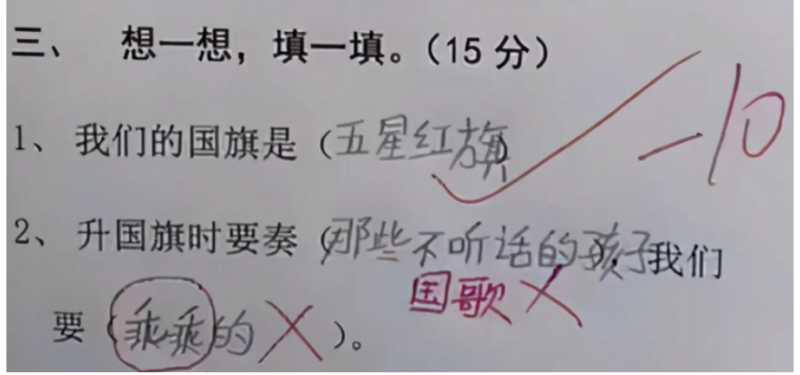 三、 想一想，填一填。（15 分）
-10
1、我们的国旗是（五星红旗）
2、升国旗时要奏（那些不听话的孩子我们
国歌
要（乖乖的）。